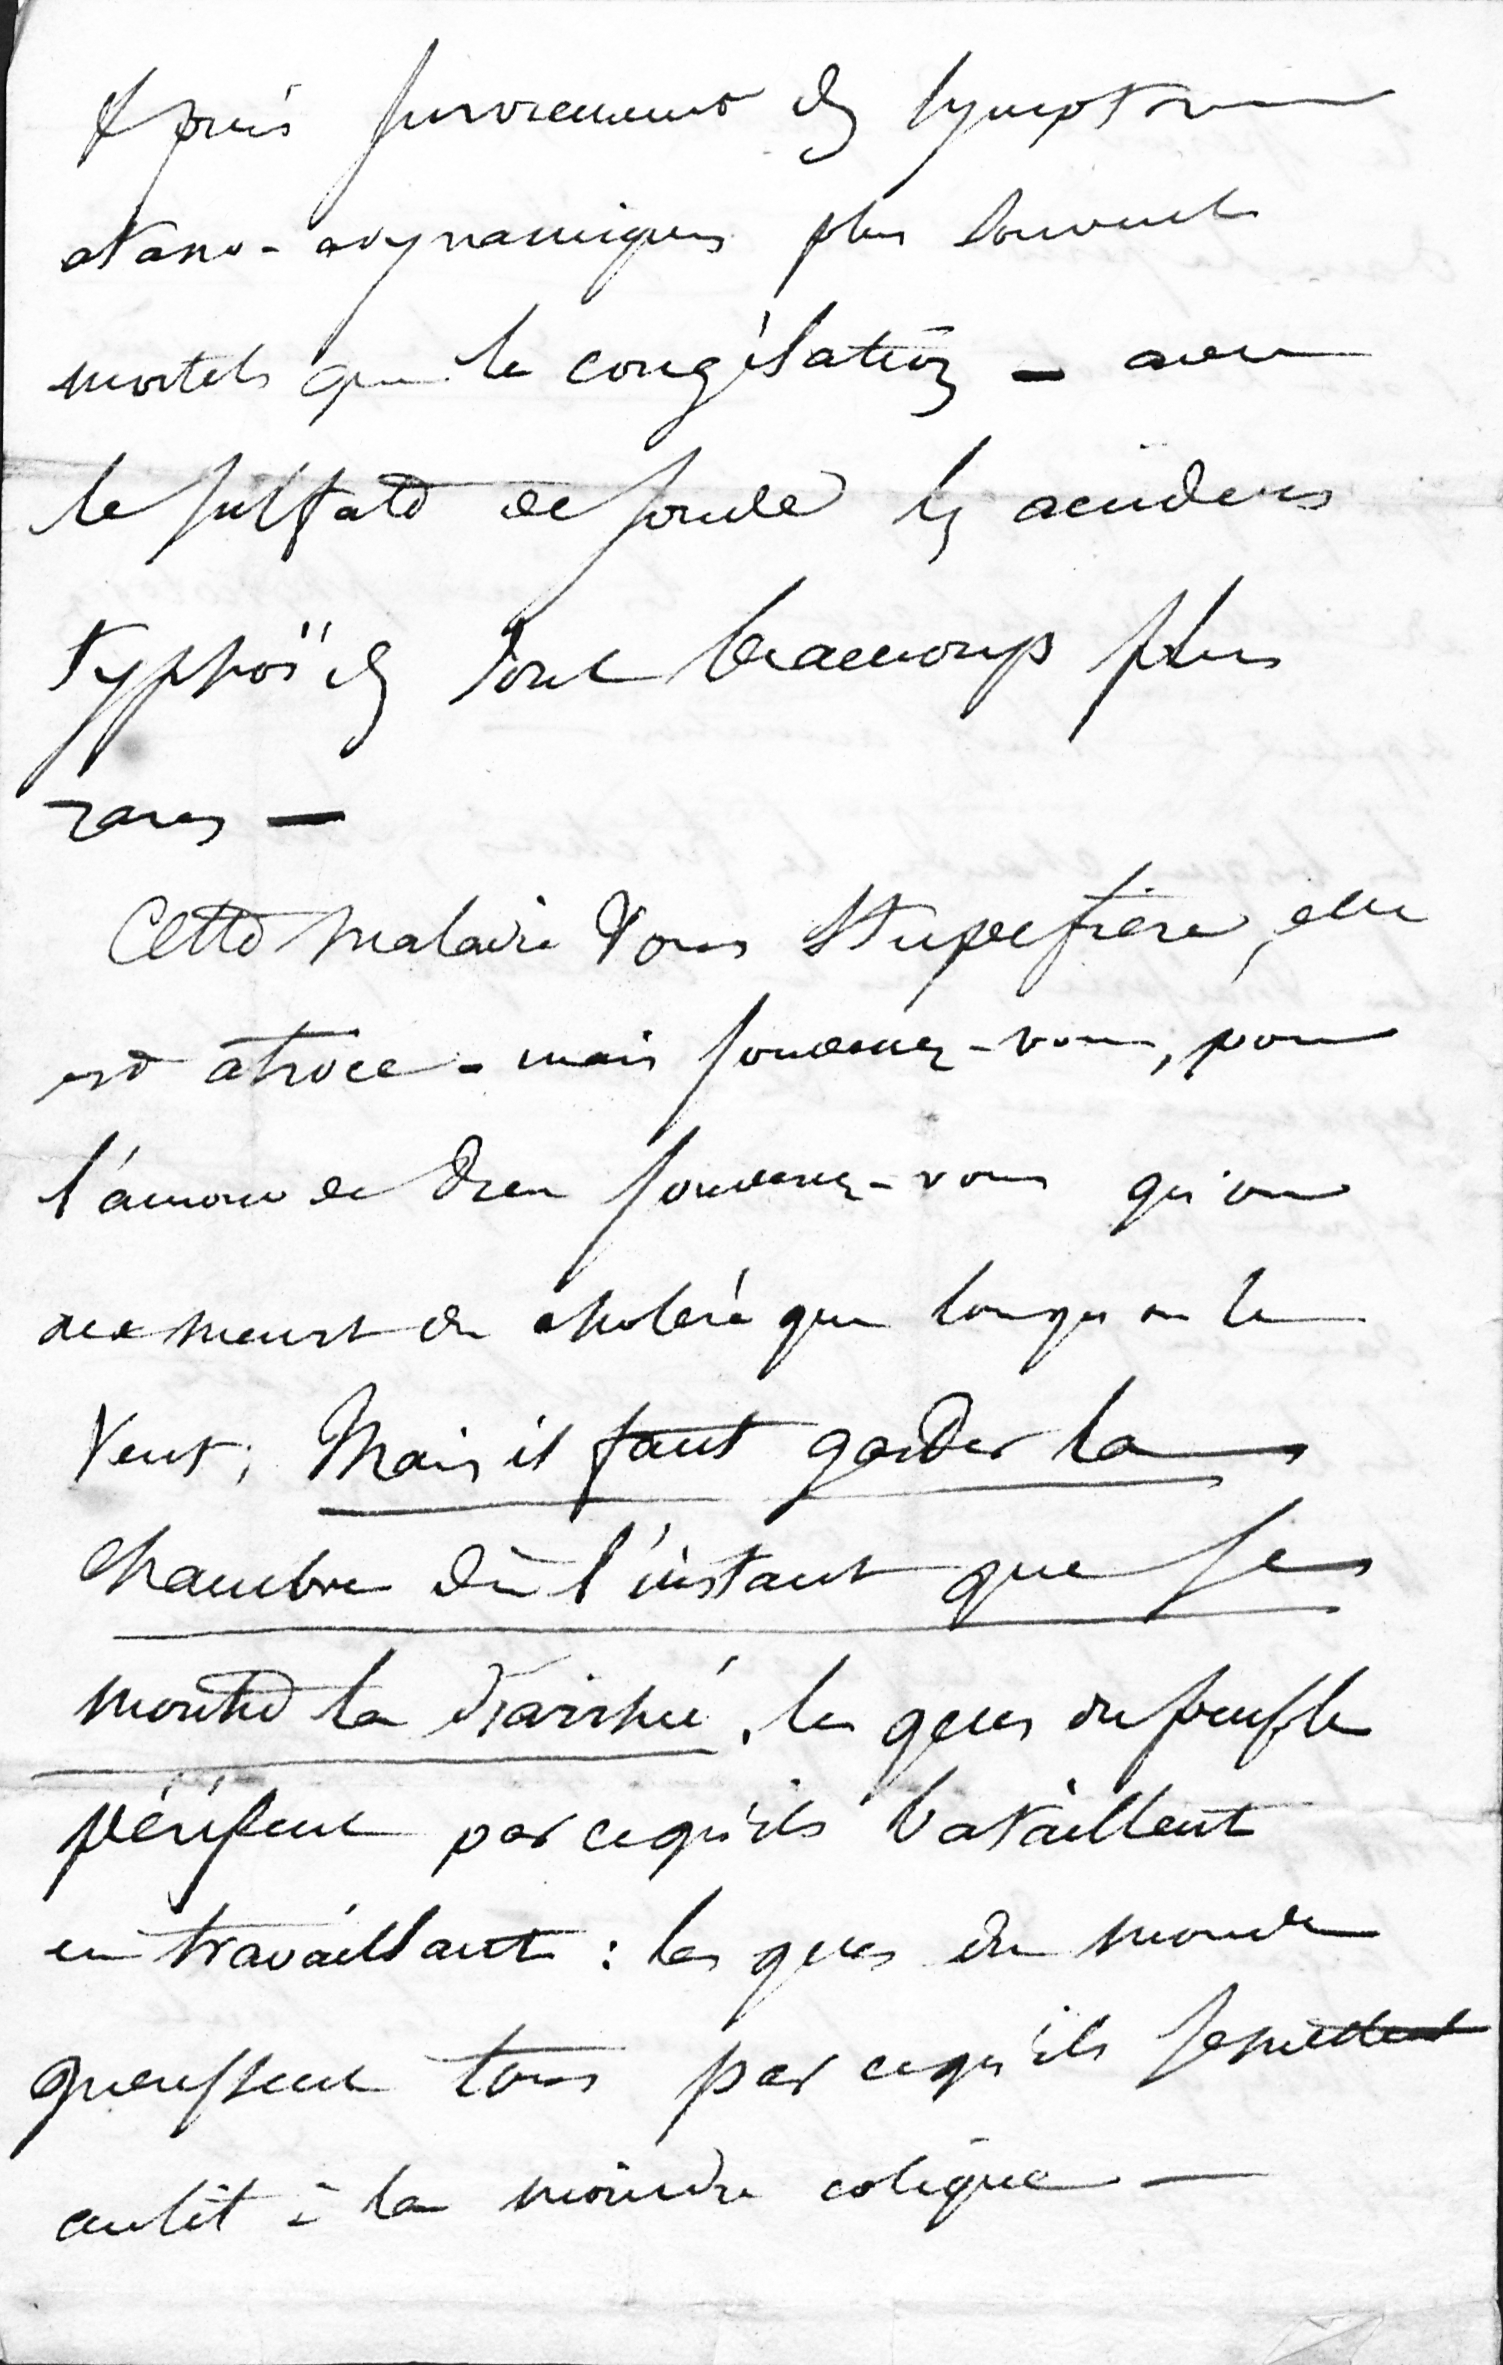 après surviennent des symptomes
ataxo-adynamiques plus souvent
mortels que la congélation – avec
le sulfate de soude les accidens
typhoïdes sont beaucoup plus
rares –
Cette maladie vous stupéfiera, elle
est atroce – mais souvenez-vous, pour
l'amour de Dieu souvenez-vous qu'on
ne meurt du choléra que lorsqu'on le
veut; Mais il faut garder la
chambre dès l'instant que se
montre la diarrhée. les gens du peuple
périssent parcequ'ils bataillent
en travaillant : les gens du monde
guérissent tous parcequ'ils se mettent
au lit à la moindre colique –